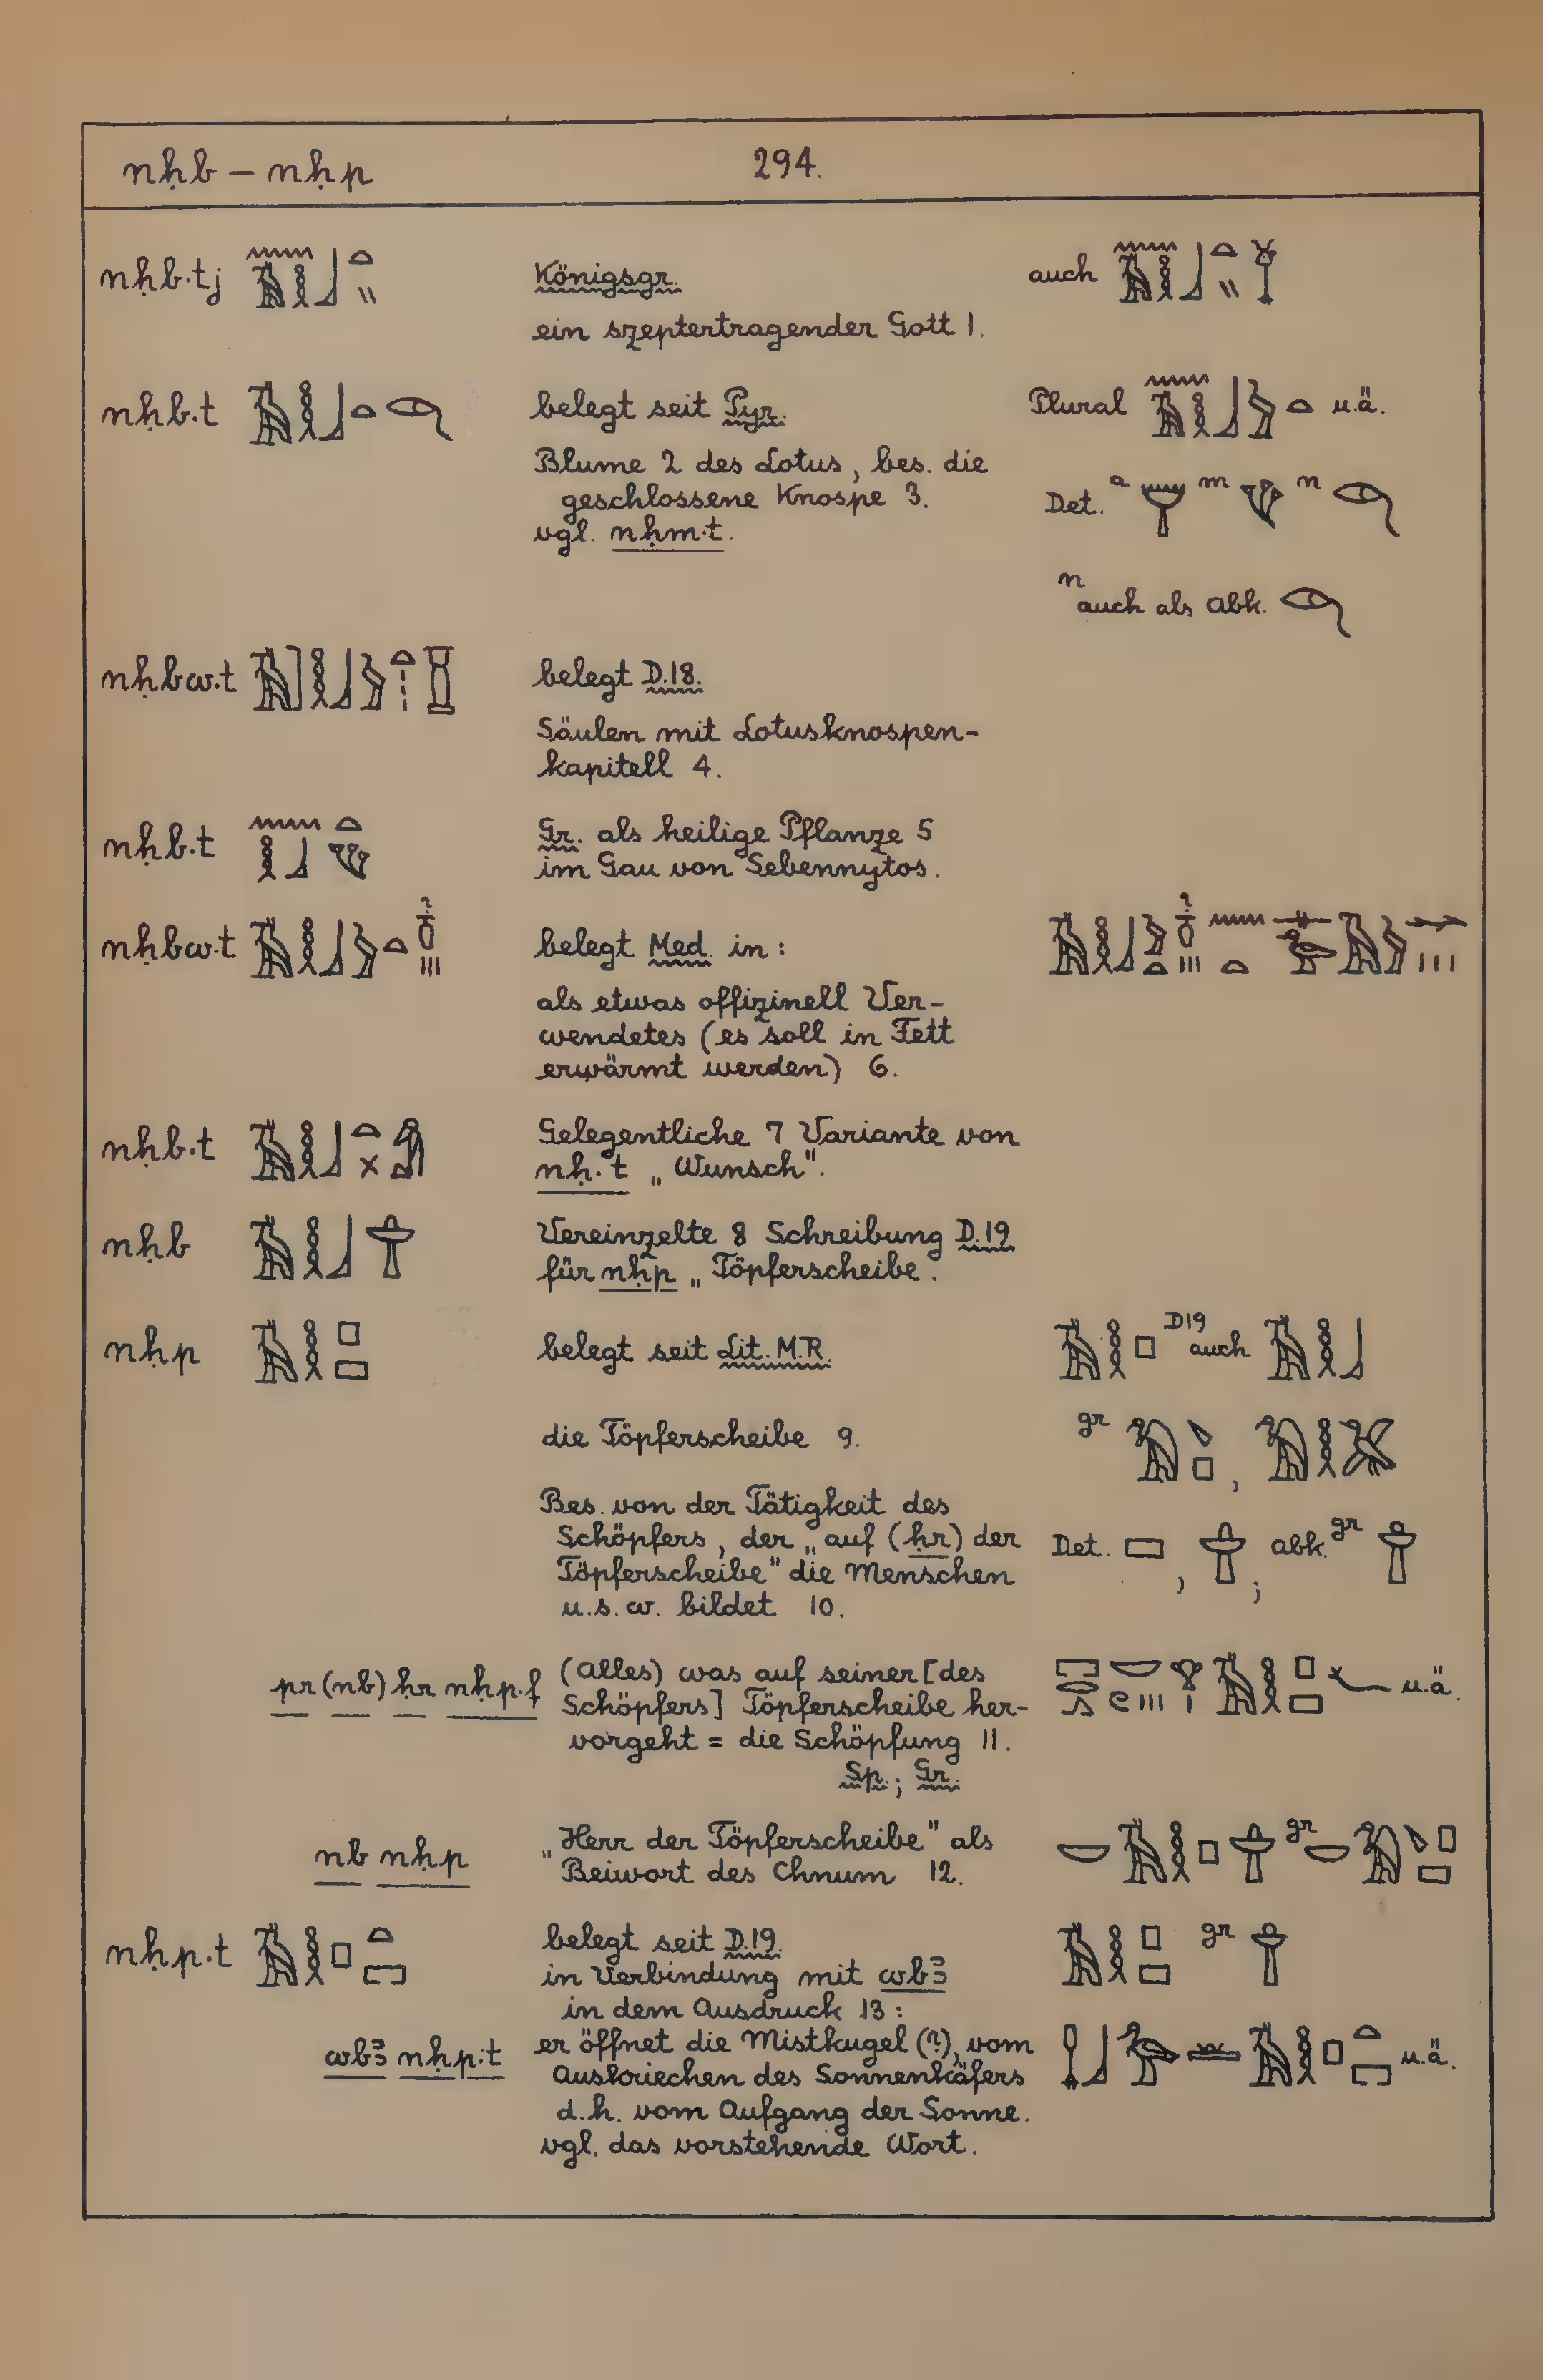 nḥb – nḥp 294.
nḥb.tj Königsgr. auch
ein szeptertragender Gott 1.
nḥb.t belegt seit Pyr. Plural u.ä.
Blume 2 des Lotus, bes. die
geschlossene Knospe 3. Det. a m n
vgl. nḥm.t.
n auch als Abk.
nḥbw.t belegt D.18.
Säulen mit Lotusknospen-
kapitell 4.
nḥb.t Gr. als heilige Pflanze 5
im Gau von Sebennytos.
nḥbw.t belegt Med. in:
als etwas offizinell Ver-
wendetes (es soll in Fett
erwärmt werden) 6.
nḥb.t Gelegentliche 7 Variante von
nḥ.t „Wunsch".
nḥb Vereinzelte 8 Schreibung D.19
für nḥp „Töpferscheibe.
nḥp belegt seit Lit. M.R. D19 auch
die Töpferscheibe 9. gr ,
Bes. von der Tätigkeit des
Schöpfers, der „auf (ḥr) der Det. , ; abk. gr
Töpferscheibe" die Menschen
u.s.w. bildet 10.
pr (nb) ḥr nḥp.f (Alles) was auf seiner [des u.ä.
Schöpfers] Töpferscheibe her-
vorgeht = die Schöpfung 11.
Sp.; Gr.
nb nḥp „Herr der Töpferscheibe" als gr
Beiwort des Chnum 12.
nḥp.t belegt seit D.19. gr
in Verbindung mit wbꜣ
in dem Ausdruck 13:
wbꜣ nḥp.t er öffnet die Mistkugel (?), vom u.ä.
Auskriechen des Sonnenkäfers
d.h. vom Aufgang der Sonne.
vgl. das vorstehende Wort.